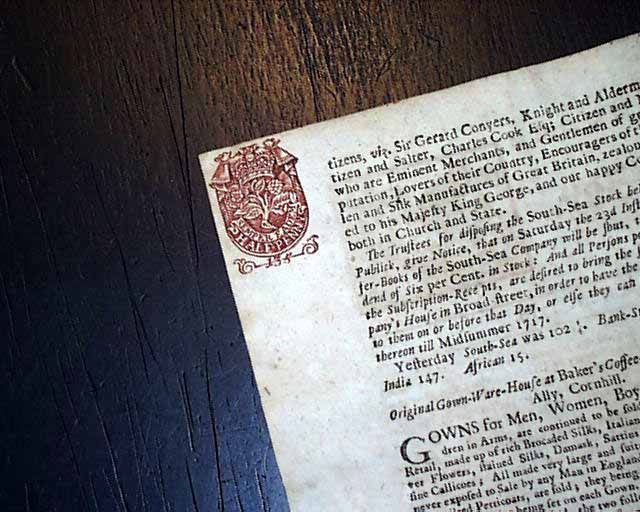 HALF PENNY
134
tizens, viz. Sir Gerard Conyers, Knight and Alderm
tizen and Salter, Charles Cook Esq; Citizen and
who are Eminent Merchants, and Gentlemen of
putation, Lovers of their Country, Encouragers of
len and Silk Manufactures of Great Britain, zealou
ed to his Majesty King George, and our happy C
both in Church and State.
The Trustees for disposing the South-Sea Stock
Publick, give Notice, that on Saturday the 23d Inst
fer-Books of the South-Sea Company will be shut,
dend of Six per Cent. in Stock; And all Persons
the Subscription-Receipts, are desired to bring the
pany's House in Broad street, in order to have the
to them on or before that Day, or else they can
thereon till Midsummer 1717.
Yesterday South-Sea was 102 Bank-S
India 147. African 15.
Original Gown-Ware-House at Baker's Coffee
Ally, Cornhill.
GOWNS for Men, Women, Boy
dren in Arms, are continued to be sol
Retail, made up of rich Brocaded Silks, Italian
ver Flowers, stained Silks, Damask,
fine Callicoes, All made very large and
never exposed to Sale by any Man in England
Petticoats, are sold, they being
being set on each Gown.
the two fol